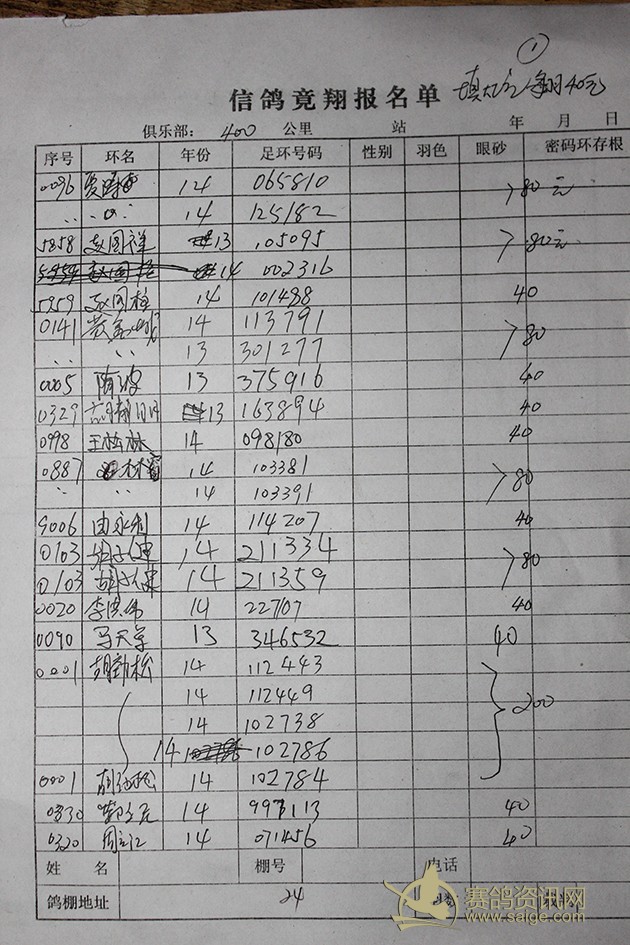 ①
信鸽竟翔报名单 40元
俱乐部： 400 公里 站 年 月 日
序号 环名 年份 足环号码 性别 羽色 眼砂 密码环存根
0096 14 065810 80元
14 125182
5858 赵国祥 13 105095 80元
14 002316
5959 赵国柱 14 101488 40
0141 14 113791 80
13 301277
0005 隋波 13 375916 40
0329 13 163894 40
0998 王松林 14 098180 40
0887 14 103381 80
14 103391
9006 由永利 14 114207 40
0103 胡子健 14 211334 80
0103 胡子健 14 211359
0020 李洪伟 14 22707 40
0090 马天军 13 346532 40
0001 胡勤松 14 112443 200
14 112449
14 102738
14 102786
0001 胡勤松 14 102784
0830 14 997113 40
0320 周立江 14 071456 40
姓 名 棚号 电话
鸽棚地址 24 羽数
赛鸽资讯网
www.saige.com